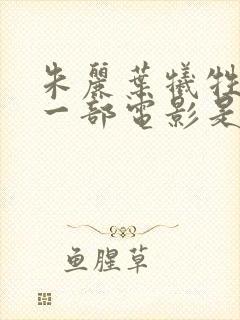 朱麗葉犧牲
一部電影是
鱼腥草